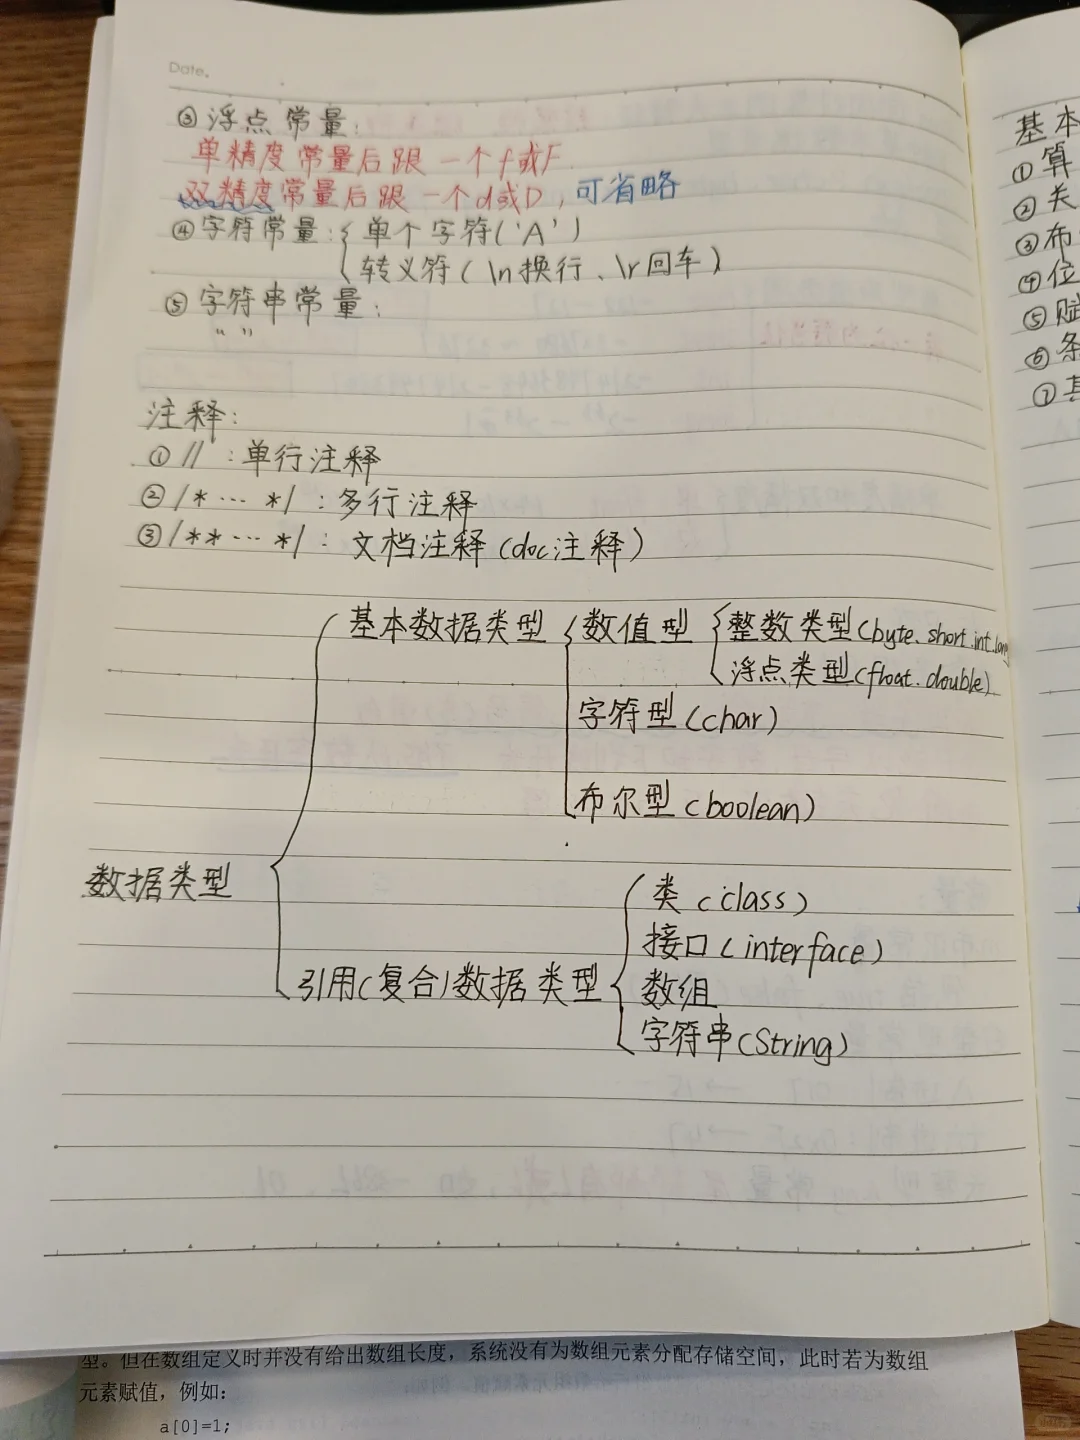 Date.
③浮点常量:
单精度常量后跟一个f或F.
双精度常量后跟一个d或D,可省略
④字符常量:{单个字符('A')
转义符(\n换行、\r回车)
⑤字符串常量:
“ ”
注释:
①// :单行注释
②/*…*/ :多行注释
③/**…*/ :文档注释(doc注释)
基本数据类型 数值型 整数类型(byte.short.int.long
浮点类型(float.double)
字符型(char)
布尔型(boolean)
数据类型
类(class)
接口(interface)
引用(复合)数据类型 数组
字符串(String)
基本
①算
②关
③布
④位
⑤赋
⑥条
⑦其
型。但在数组定义时并没有给出数组长度,系统没有为数组元素分配存储空间,此时若为数组
元素赋值,例如:
a[0]=1;